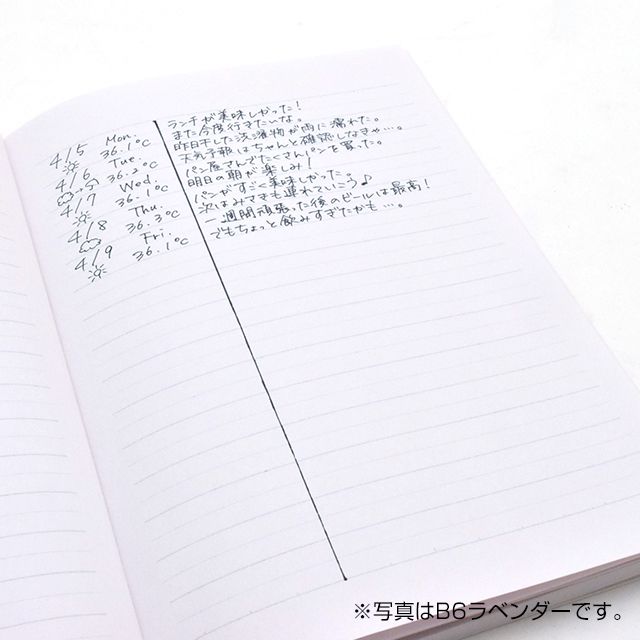 4/5 Mon. ランチが美味しかった!
36.1℃ また今度行きたいな。
4/6 Tue. 昨日干した洗濯物が雨に濡れた。
36.2℃ 天気予報はちゃんと確認しなきゃ…。
4/7 Wed. パン屋さんでたくさんパンを買った。
36.1℃ 明日の朝が楽しみ!
4/8 Thu. パンがすごく美味しかった。
36.3℃ 次はみさきも連れていこう♪
4/9 Fri. 一週間頑張った後のビールは最高!
36.1℃ でもちょっと飲みすぎたかも…。
※写真はB6ラベンダーです。